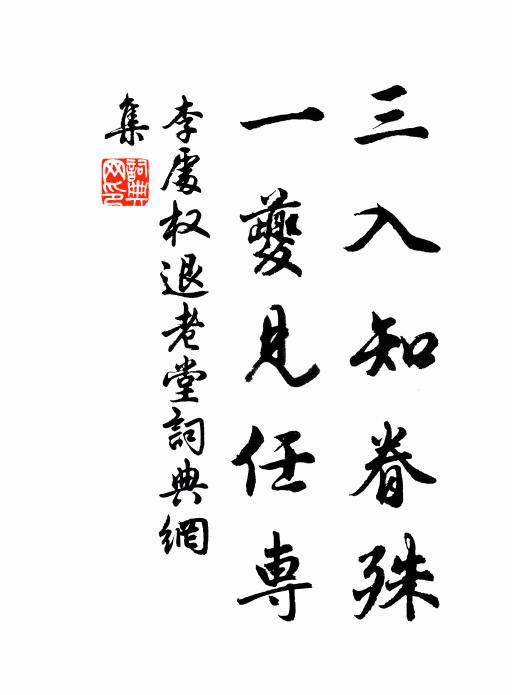 三入知眷殊
一夔見任専
李處权退老堂詞典網
集
詞典网印